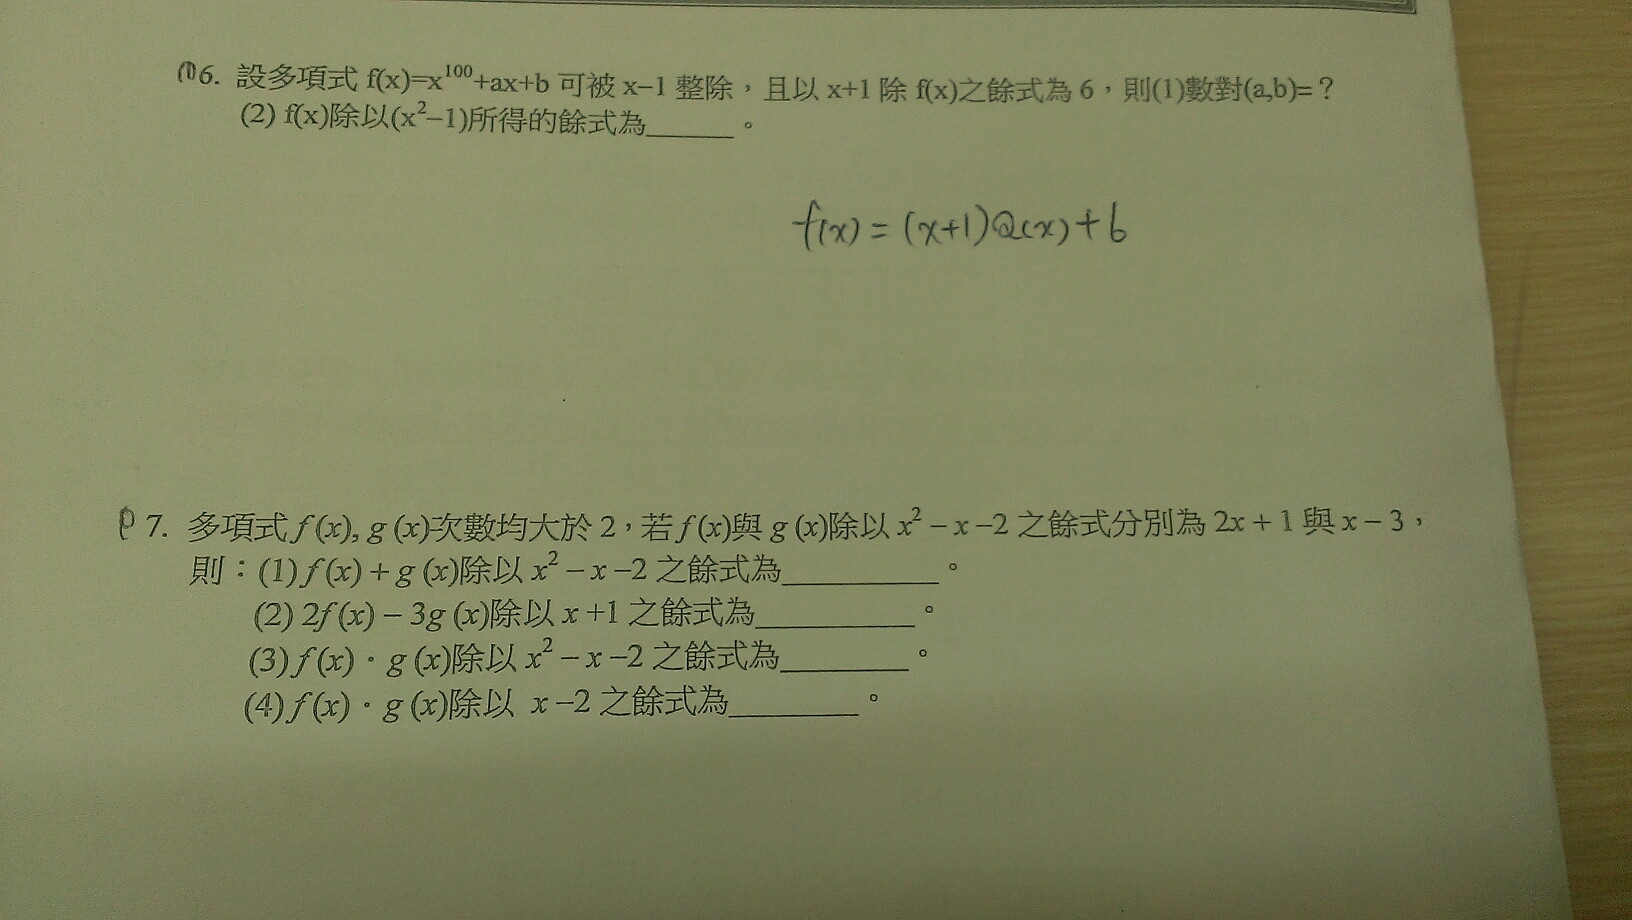 (1)6. 設多項式 f(x)=x¹⁰⁰+ax+b 可被 x−1 整除，且以 x+1 除 f(x)之餘式為 6，則(1)數對(a,b)=？
(2) f(x)除以(x²−1)所得的餘式為______。
f(x) = (x+1)Q(x)+6
7. 多項式 f (x), g (x)次數均大於 2，若 f (x)與 g (x)除以 x² − x −2 之餘式分別為 2x + 1 與 x − 3，
則：(1) f (x) + g (x)除以 x² − x −2 之餘式為__________。
(2) 2f (x) − 3g (x)除以 x +1 之餘式為__________。
(3) f (x)．g (x)除以 x² − x −2 之餘式為________。
(4) f (x)．g (x)除以 x −2 之餘式為________。